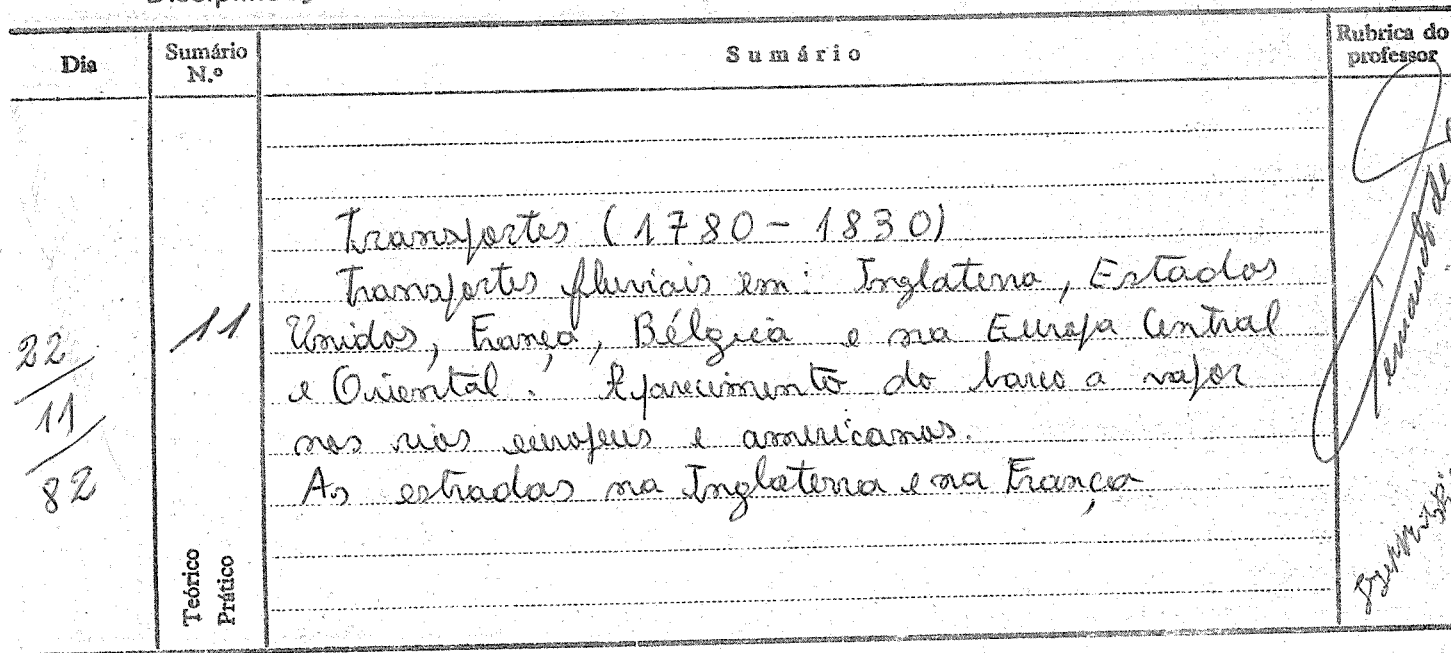 Dia
Sumário N.º
Sumário
Rubrica do professor
Transportes (1780 - 1830)
Transportes fluviais em: Inglaterra, Estados
Unidos, França, Bélgica e na Europa Central
e Oriental. Aparecimento do barco a vapor
nos rios europeus e americanos.
As estradas na Inglaterra e na França
22/11/82
11
Teórico
Prático